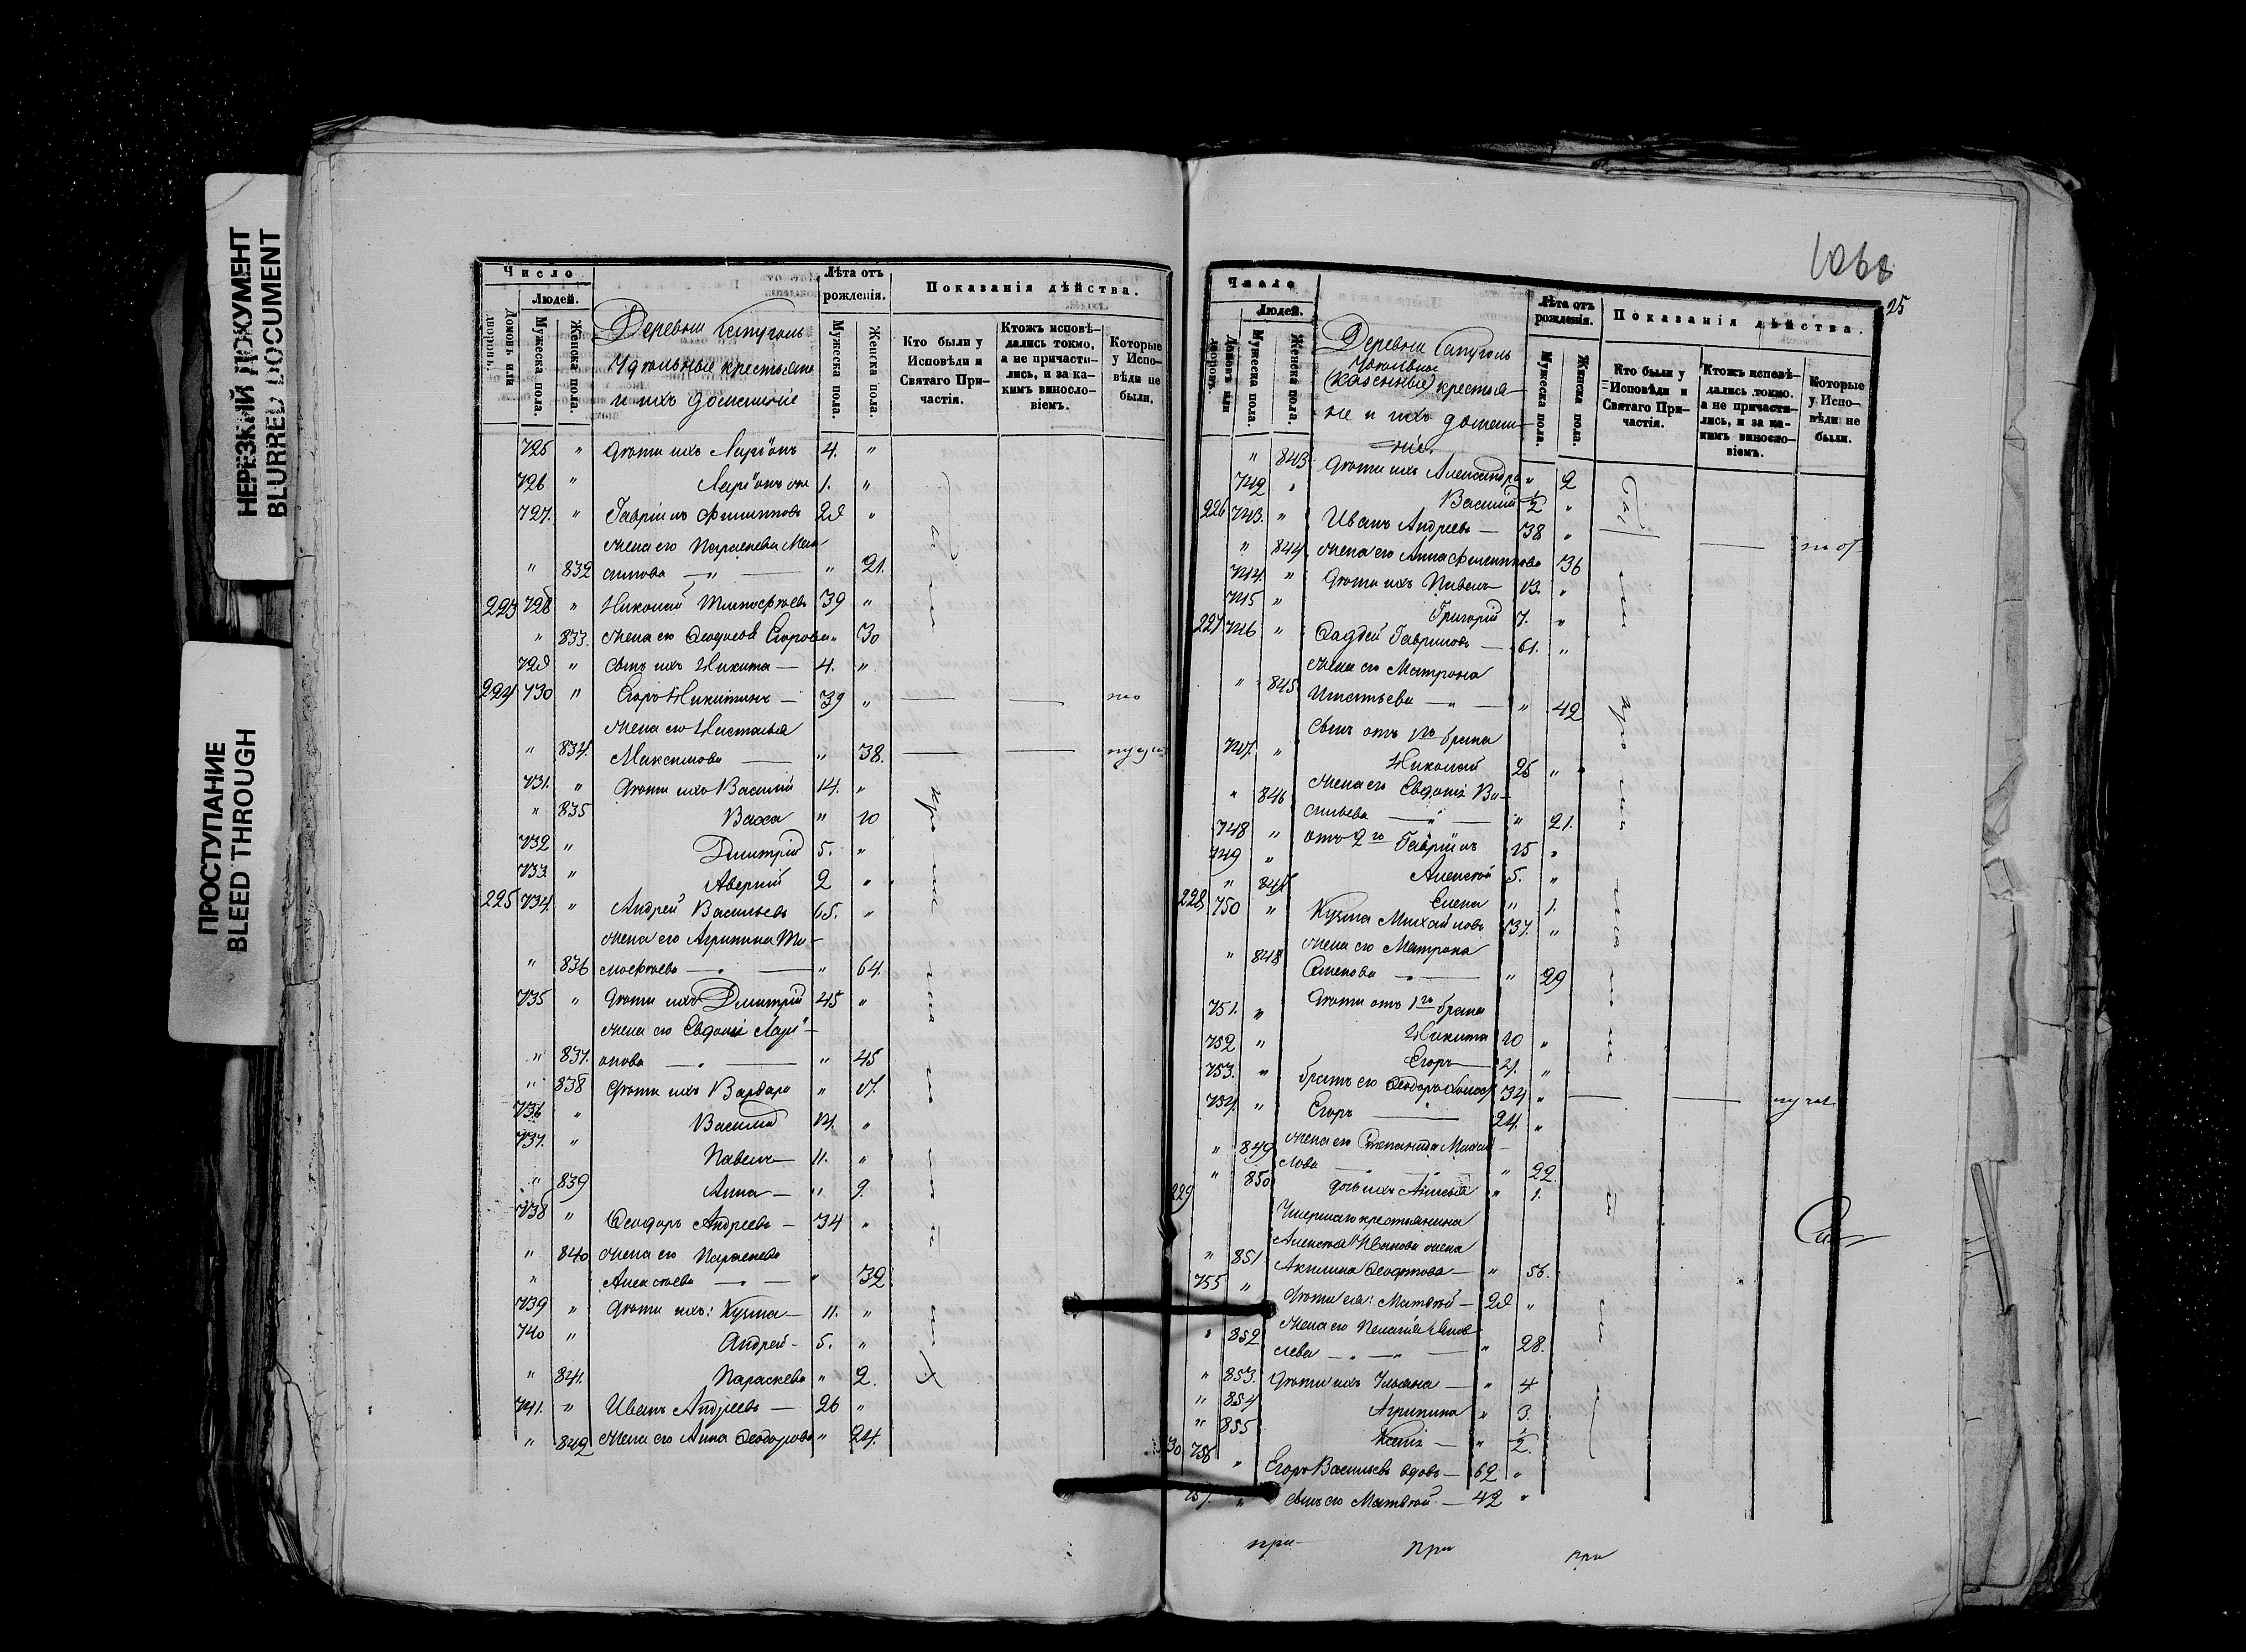 НЕРЕЗКИЙ ДОКУМЕНТ
BLURRED DOCUMENT
ПРОСТУПАНИЕ
BLEED THROUGH
Число
Людей.
Домовъ или дворовъ.
Мужеска пола.
Женска пола.
Деревни
Удѣльные крестьяне
и ихъ домашніе
Лѣта отъ рожденія.
Мужеска пола.
Женска пола.
Показанія дѣйства.
Кто были у Исповѣди и Святаго Причастія.
Ктожъ исповѣдались токмо, а не причастились, и за какимъ винословіемъ.
Которые у Исповѣди не были.
725 " Дѣти ихъ Ларіонъ 4. "
726 " Ларіонъ 1. "
727. " Гавріилъ Филипповъ 28 "
жена его Параскева Мак-
" 832 симова — " — " 21.
223 728 " Николай Тимофѣевъ 39 "
" 833. жена его Ѳеодосія Егорова " 30
729 " сынъ ихъ Никита — 4. "
224 730 " Егоръ Никитинъ — 39 "
жена его Настасья
" 834. Максимова — " 38.
731. " Дѣти ихъ Василій 14. "
" 835 Васса " 10
732 " Димитрій 5. "
733 " Аверкій 2 "
225 734. " Андрей Васильевъ 65. "
жена его Агрипина Ти-
" 836 моѳѣева — " — " 64.
735 " Дѣти ихъ Димитрій 45 "
жена его Евдокія Ларі-
" 837. онова — " — " 45
" 838 Дѣти ихъ Варвара " 17.
736 " Василій 14. "
737. " Павелъ — 11. "
" 839 Анна — " 9.
738 " Ѳеодоръ Андреевъ — 34 "
" 840 жена его Параскева
" Алексѣева — " — " 32
739 " Дѣти ихъ: Кузма — 11. "
740 " Андрей — 5. "
" 841. Параскева " 2.
741. " Иванъ Андреевъ — 26 "
" 842 жена его Анна Ѳеодорова " 24.
25
Число
Людей.
Домовъ или дворовъ.
Мужеска пола.
Женска пола.
Деревни
Удѣльные
(казенные) крестья-
не и ихъ домаш-
ніе.
Лѣта отъ рожденія.
Мужеска пола.
Женска пола.
Показанія дѣйства.
Кто были у Исповѣди и Святаго Причастія.
Ктожъ исповѣдались токмо. а не причастились, и за какимъ винословіемъ.
Которые у Исповѣди не были.
" 843 Дѣти ихъ Александра " 2
742 " Василій ½ "
226 743. " Иванъ Андреевъ — 38 "
" 844 жена его Анна Филиппова 36
744. " Дѣти ихъ Павелъ 13. "
745 " Григорій 7. "
227 746 " Ѳаддей Гавриловъ — 61. "
жена его Матрона
" 845 Игнатьева — " — " 42
сынъ отъ 1го брака
747. " Николай 25 "
" 846 жена его Евдокія Ва-
сильева — " — " 21.
748 " отъ 2го Гавріилъ 15 "
749 " Алексѣй 5. "
" 847 Елена " 1.
228 750 " Кузма Михайловъ 37. "
жена его Матрона
" 848 Семенова — " — " 29
751. " Дѣти отъ 1го брака
752 " Никита 10 "
753. " Егоръ
братъ его Ѳеодоръ 34 "
754. " Егоръ — 24. "
" 849 жена его Степанида Михай-
лова " 22.
" 850 дочь ихъ " 1.
229
Умершаго крестьянина
Алексѣя Иванова жена
" 851 Акилина — " 56.
755 " Дѣти ея: Матвѣй — 28 "
" 852 жена его Пелагія Яков-
лева — " — " — " 28.
" 853. Дѣти ихъ Ульяна — " 4
" 854 Агрипина " 3.
" 855 — " ½.
30 756 " Егоръ Васильевъ вдовъ — 62 "
757. " сынъ его Матвѣй — 42 "
при при при